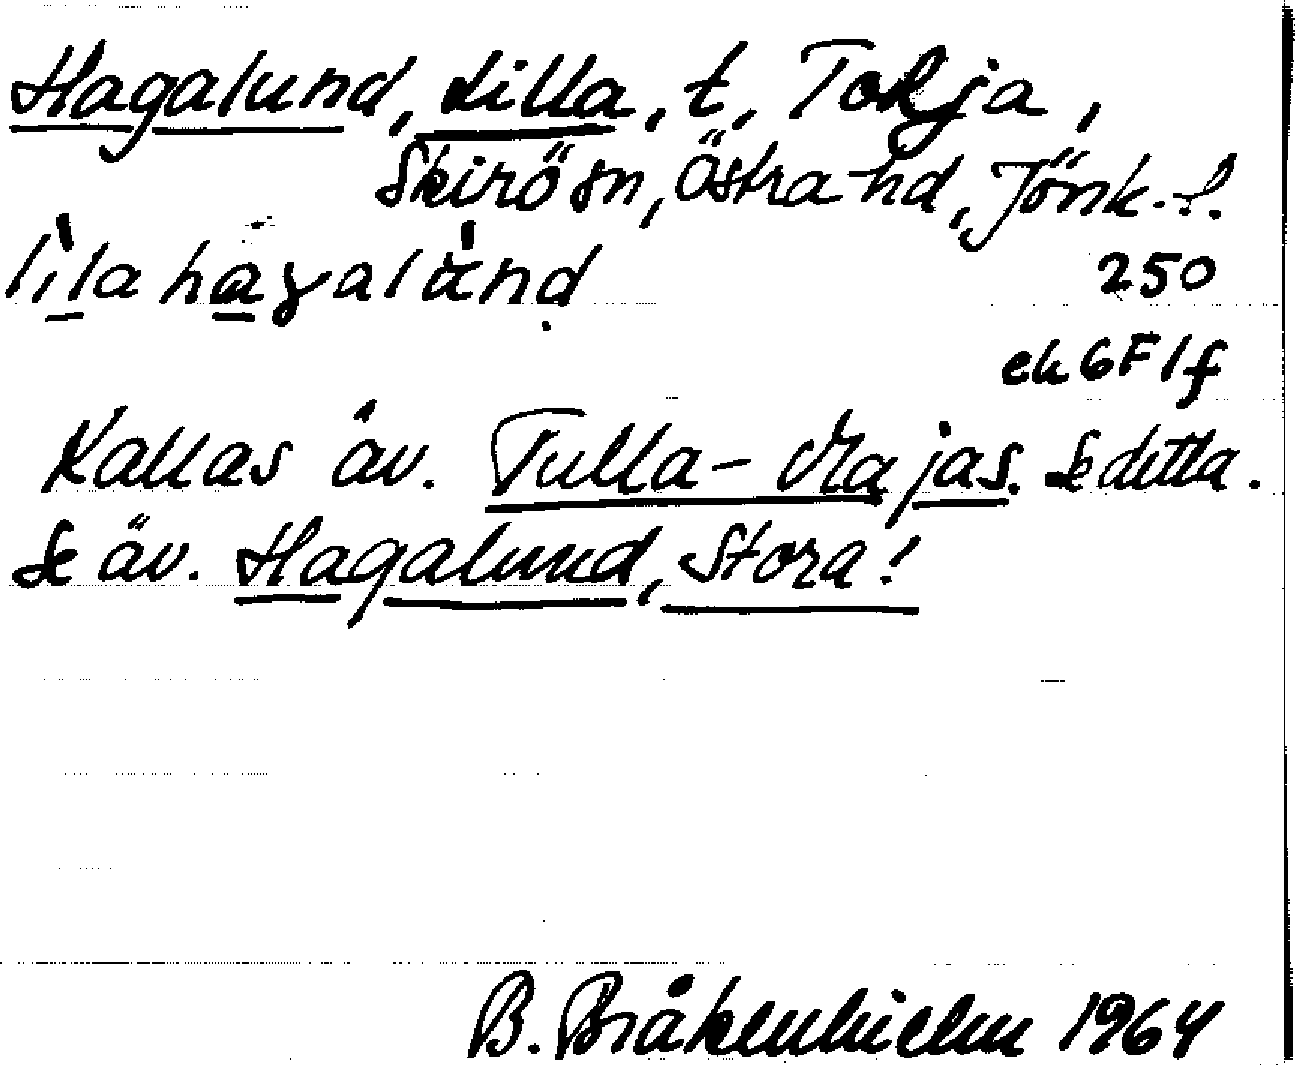 Hagalund, Lilla, t. Tolja,
Skirö sn, Östra hd, Jönk. l.
li̱`la ha̱gala`nḍ
250
ek 6F1f
Kallas äv. Tulla-Majas. Se detta.
Se äv. Hagalund, Stora!
B. Bråkenhielm 1964